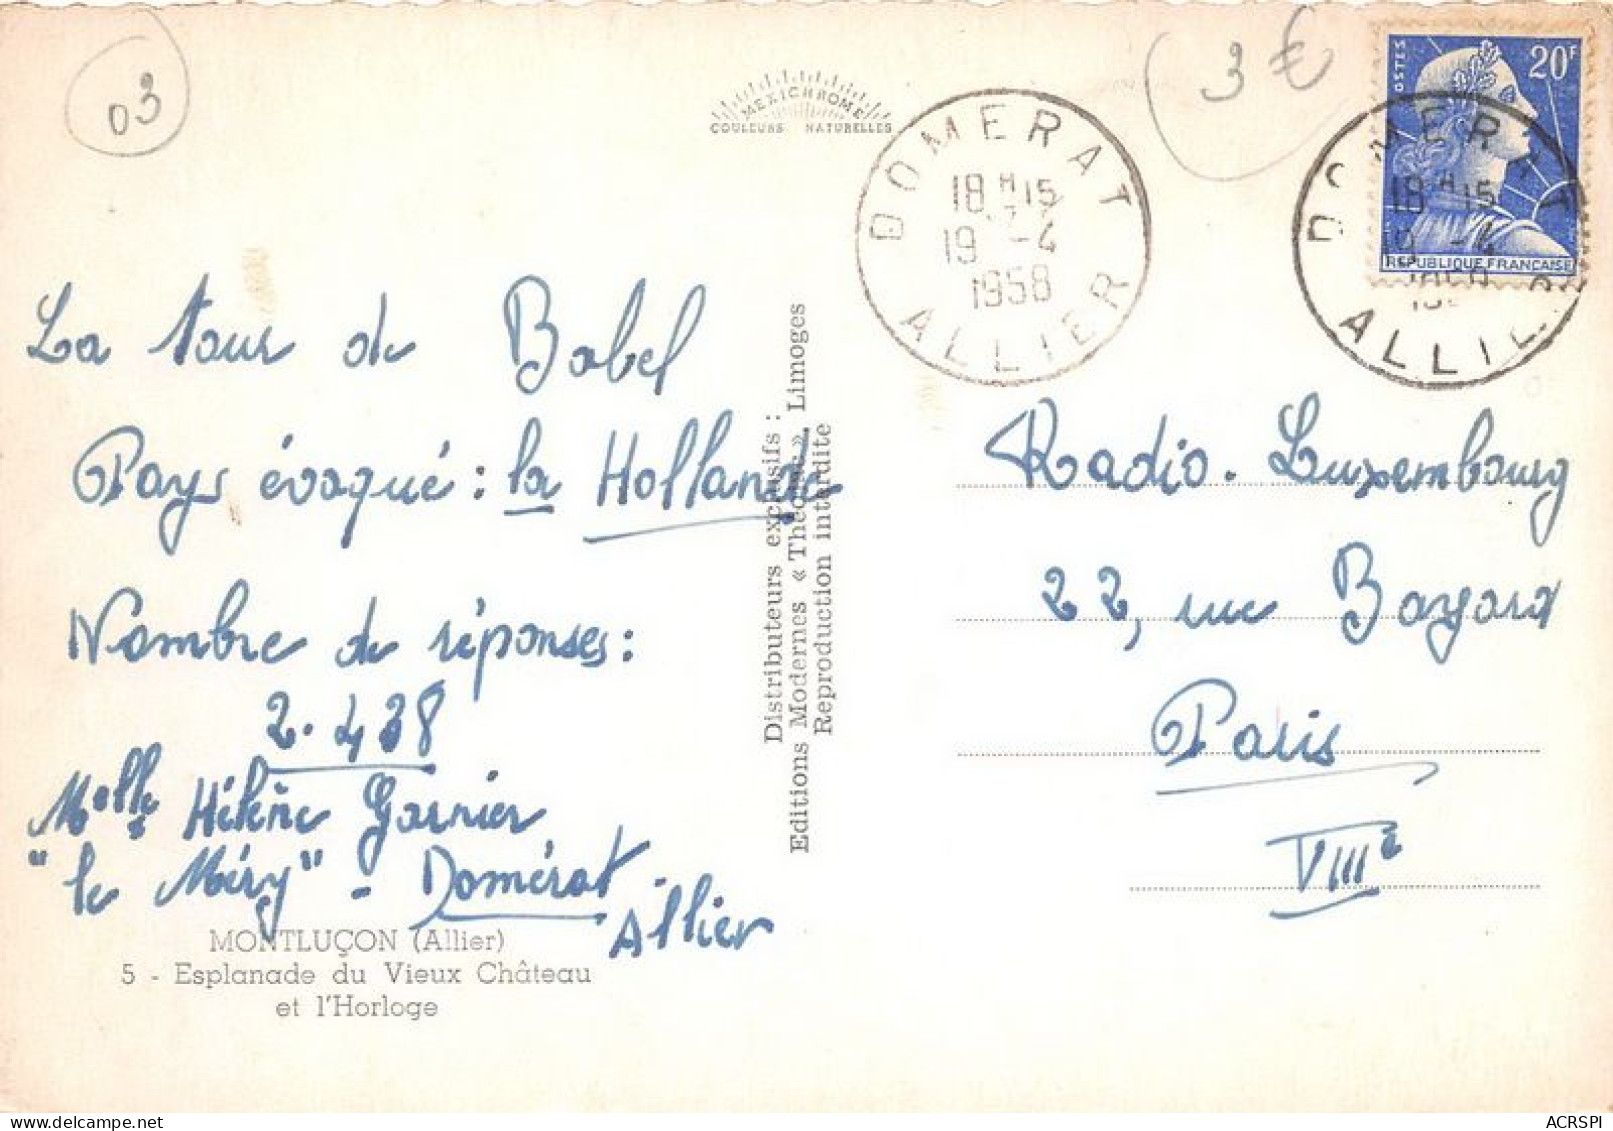 03
MEXICHROME
COULEURS NATURELLES
3 €
POSTES
20F
REPUBLIQUE FRANCAISE
DOMERAT
18 H 15
19 -4
1958
ALLIER
DOMERAT
18 H 15
19 -4
ALLIER
La tour de Babel
Pays évoqué : la Hollande
Nombre de réponses :
2.438
Melle Hélène Garnier
"le Méry" - Domérat
Allier
MONTLUÇON (Allier)
5 - Esplanade du Vieux Château
et l'Horloge
Distributeurs exclusifs :
Editions Modernes « Théojac » Limoges
Reproduction interdite
Radio-Luxembourg
22, rue Bayard
Paris
VIIIe
ACRSPI